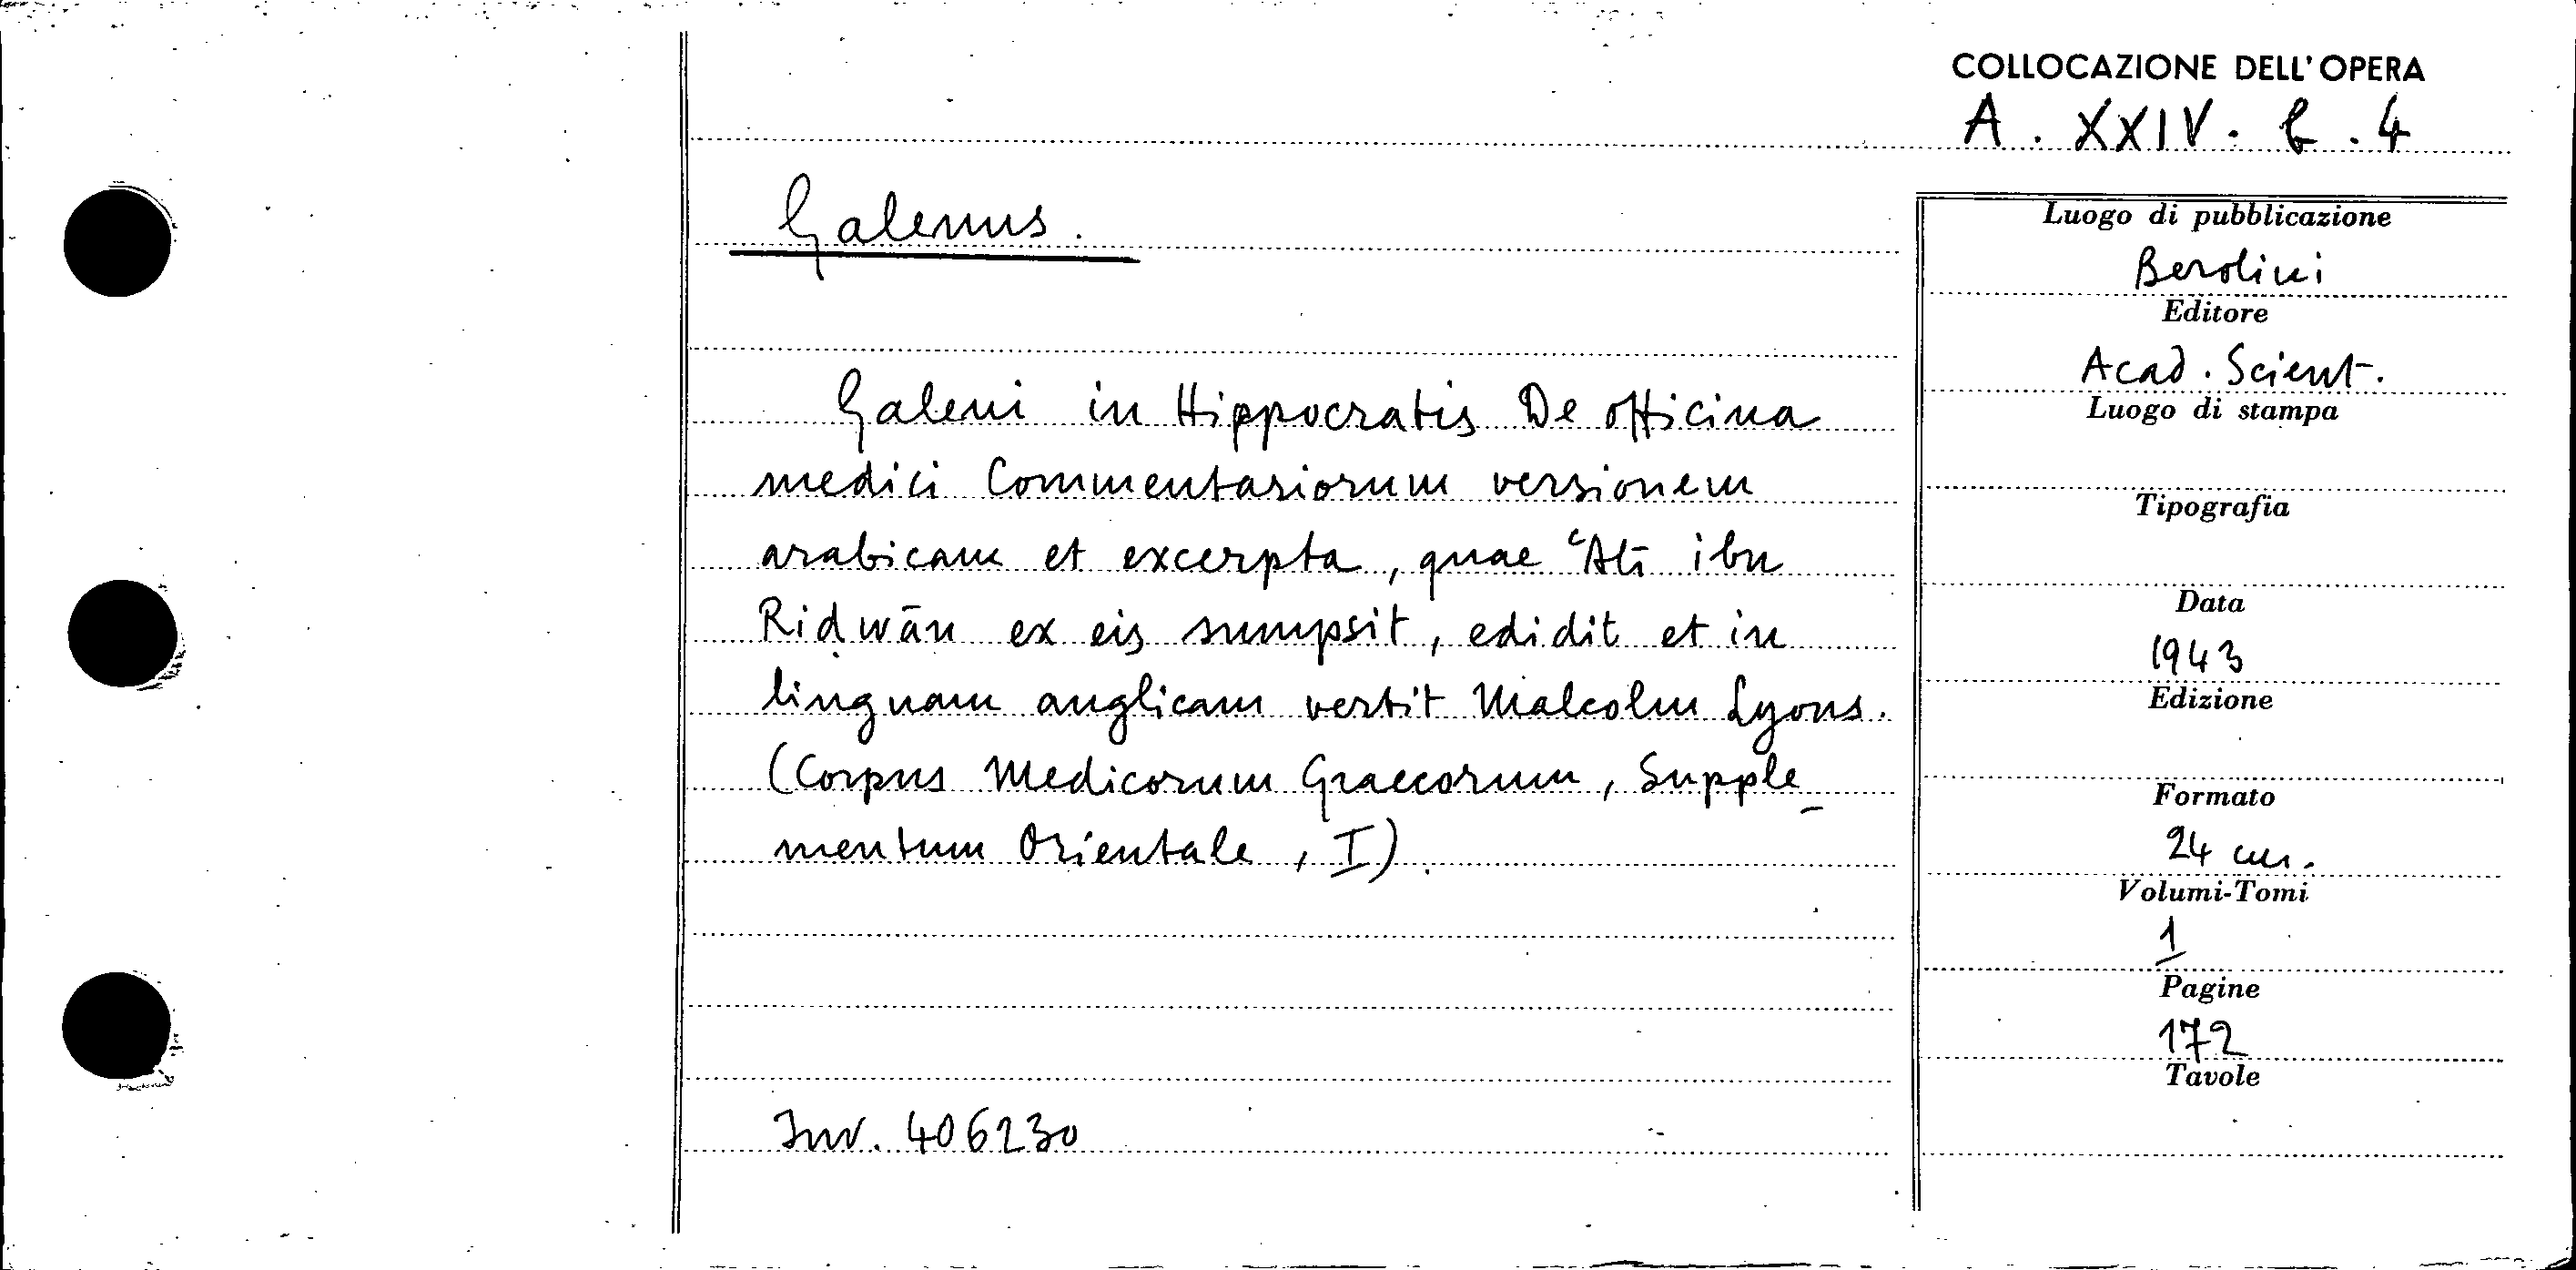 COLLOCAZIONE DELL'OPERA
A. XXIV. b. 4
Galenus.
Galeni in Hippocratis De officina
medici Commentariorum versionem
arabicam et excerpta, quae ʿAlī ibn
Riḍwān ex eis sumpsit, edidit et in
linguam anglicam vertit Malcolm Lyons.
(Corpus Medicorum Graecorum, Supple-
mentum Orientale, I).
Inv. 406230
Luogo di pubblicazione
Berolini
Editore
Acad. Scient.
Luogo di stampa
Tipografia
Data
1943
Edizione
Formato
24 cm.
Volumi-Tomi
1
Pagine
172
Tavole